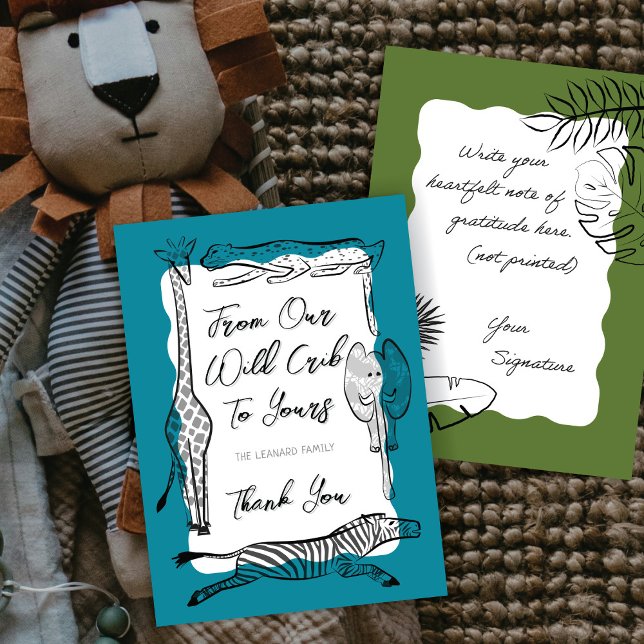 From Our
Wild Crib
To Yours
THE LEANARD FAMILY
Thank You
Write your
heartfelt note of
gratitude here.
(not printed)
Your
Signature